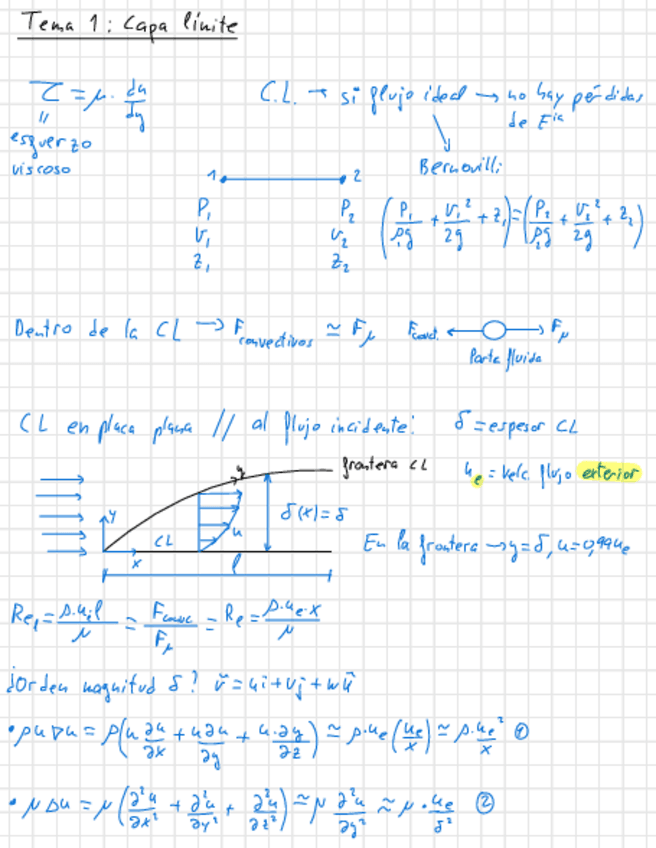 Tema 1: Capa límite
τ = μ · du/dy
"
esfuerzo
viscoso
C.L. → si flujo ideal → no hay pérdidas
de Eia
Bernouilli
1 2
P₁ P₂ (P₁/ρ₁g + v₁²/2g + z₁) = (P₂/ρ₂g + v₂²/2g + z₂)
v₁ v₂
z₁ z₂
Dentro de la CL → F convectivos ≃ Fμ
Fconv. Fμ
Parte fluida
CL en placa plana // al flujo incidente: δ = espesor CL
frontera CL
ue = velc. flujo exterior
y
CL
x
u
δ(x) = δ
l
En la frontera → y = δ, u = 0,99ue
Reₗ = ρ·ue·l/μ = Fconv/Fμ = Re = ρ·ue·x/μ
¿Orden magnitud δ? v̄ = ui + vj + wk̄
• ρu∇u = ρ(u ∂u/∂x + u∂u/∂y + u·∂y/∂z) ≃ ρ·ue(ue/x) ≃ ρ·ue²/x ①
• μΔu = μ(∂²u/∂x² + ∂²u/∂y² + ∂²u/∂z²) ≃ μ ∂²u/∂y² ≈ μ · ue/δ² ②